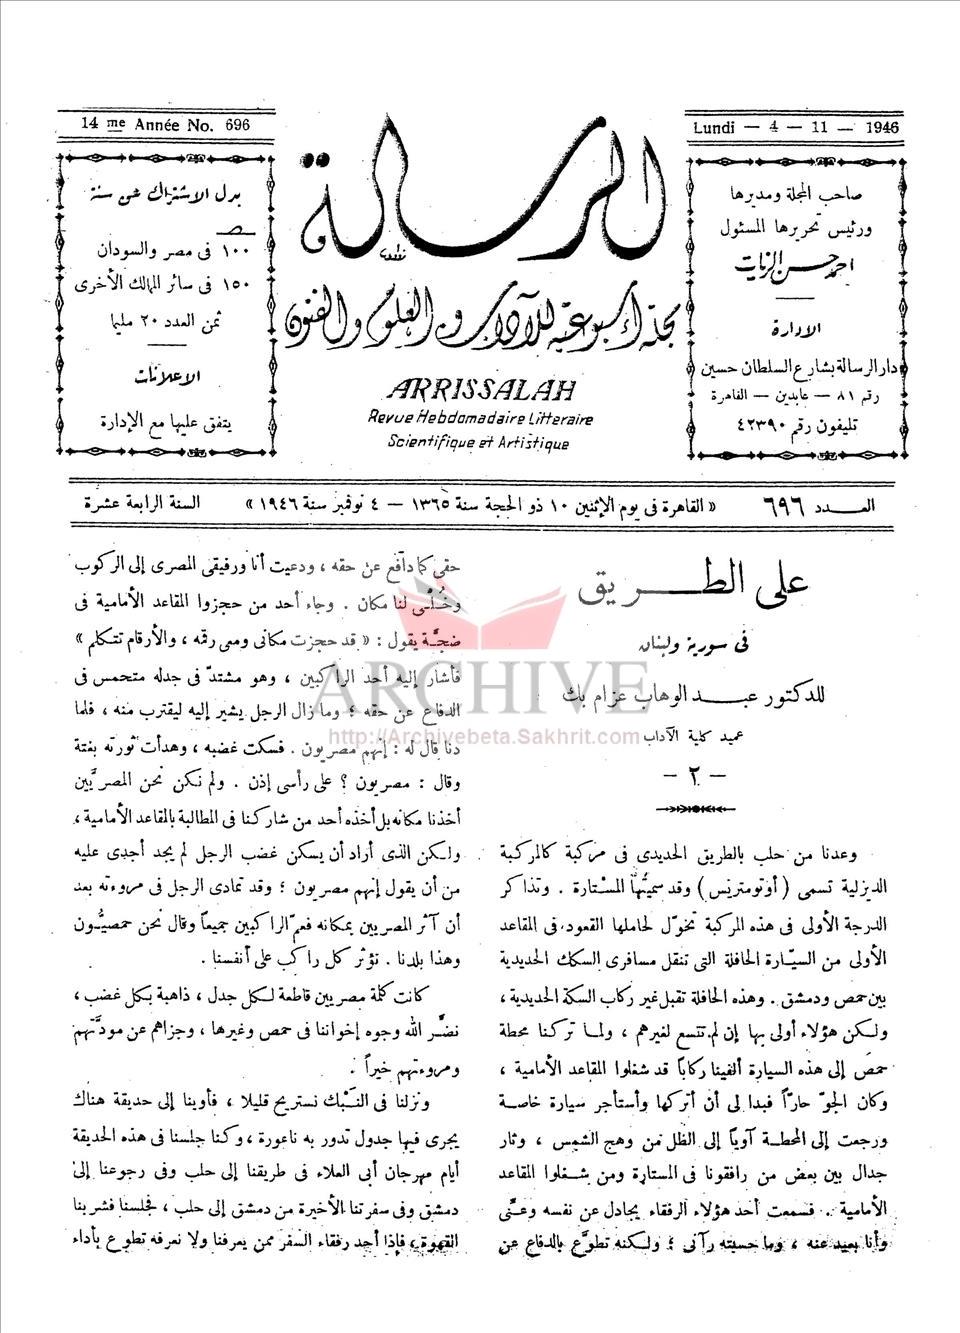 14 me Année No. 696
Lundi — 4 — 11 — 1946
بدل الاشتراك عن سنة
١٠٠ فى مصر والسودان
١٥٠ فى سائر الممالك الأخرى
ثمن العدد ٢٠ مليما
الاعلانات
يتفق عليها مع الإدارة
الرسالة
مجلة أسبوعية للآداب والعلوم والفنون
ARRISSALAH
Revue Hebdomadaire Litteraire
Scientifique et Artistique
صاحب المجلة ومديرها
ورئيس تحريرها المسئول
احمد حسن الزيات
الادارة
دار الرسالة بشارع السلطان حسين
رقم ٨١ — عابدين — القاهرة
تليفون رقم ٤٢٣٩٠
العـدد ٦٩٦ « القاهرة فى يوم الإثنين ١٠ ذو الحجة سنة ١٣٦٥ — ٤ نوفمبر سنة ١٩٤٦ » السنة الرابعة عشرة
على الطـريق
فى سورية ولبنان
للدكتور عبد الوهاب عزام بك
عميد كلية الآداب
— ٢ —
وعدنا من حلب بالطريق الحديدى فى مركبة كالمركبة
الديزلية تسمى (أوتومتريس) وقد سميتُها المسْتارة . وتذاكر
الدرجة الأولى فى هذه المركبة تخوّل لحاملها القعود فى المقاعد
الأولى من السيّارة الحافلة التى تنقل مسافرى السكك الحديدية
بين حمص ودمشق . وهذه الحافلة تقبل غير ركاب السكة الحديدية ،
ولكن هؤلاء أولى بها إن لم تتسع لغيرهم ، ولما تركنا محطة
حمص إلى هذه السيارة ألفينا ركاباً قد شغلوا المقاعد الأمامية ،
وكان الجوّ حارّاً فبدا لى أن أتركها وأستأجر سيارة خاصة
ورجعت إلى المحطة آوياً إلى الظل من وهج الشمس ، وثار
جدال بين بعض من رافقونا فى الستارة ومن شغلوا المقاعد
الأمامية . فسمعت أحد هؤلاء الرفقاء يجادل عن نفسه وعنّى
وأنا بعيد عنه ، وما حسبته رآنى ؛ ولكنه تطوّع بالدفاع عن
حقى كما دافع عن حقه ، ودعيت أنا ورفيقى المصرى إلى الركوب
وخُلّى لنا مكان . وجاء أحد من حجزوا المقاعد الأمامية فى
ضجّة يقول : « قد حجزت مكانى ومعى رقمه ، والأرقام تتكلم »
فأشار إليه أحد الراكبين ، وهو مشتدّ فى جدله متحمس فى
الدفاع عن حقه ؛ وما زال الرجل يشير إليه ليقترب منه ، فلما
دنا قال له : إنهم مصريون . فسكت غضبه ، وهدأت ثورته بغتة
وقال : مصريون ؟ على رأسى إذن . ولم نكن نحن المصريّين
أخذنا مكانه بل أخذه أحد من شاركنا فى المطالبة بالمقاعد الأمامية ،
ولكن الذى أراد أن يسكن غضب الرجل لم يجد أجدى عليه
من أن يقول إنهم مصريون ؛ وقد تمادى الرجل فى مروءته بعد
أن آثر المصريين بمكانه فعمّ الراكبين جميعاً وقال نحن حمصيُّون
وهذا بلدنا . نؤثر كل راكب على أنفسنا .
كانت كلمة مصريين قاطعة لكل جدل ، ذاهبة بكل غضب ،
نضَّر الله وجوه إخواننا فى حمص وغيرها ، وجزاهم عن مودَّتهم
ومروءتهم خيراً .
ونزلنا فى النَّبك نستريح قليلا ، فأوينا إلى حديقة هناك
يجرى فيها جدول تدور به ناعورة ، وكنا جلسنا فى هذه الحديقة
أيام مهرجان أبى العلاء فى طريقنا إلى حلب وفى رجوعنا إلى
دمشق وفى سفرتنا الأخيرة من دمشق إلى حلب ، فجلسنا فشربنا
القهوة ، فإذا أحد رفقاء السفر ممن يعرفنا ولا نعرفه تطوع بأداء
ARCHIVE
http://Archivebeta.Sakhrit.com